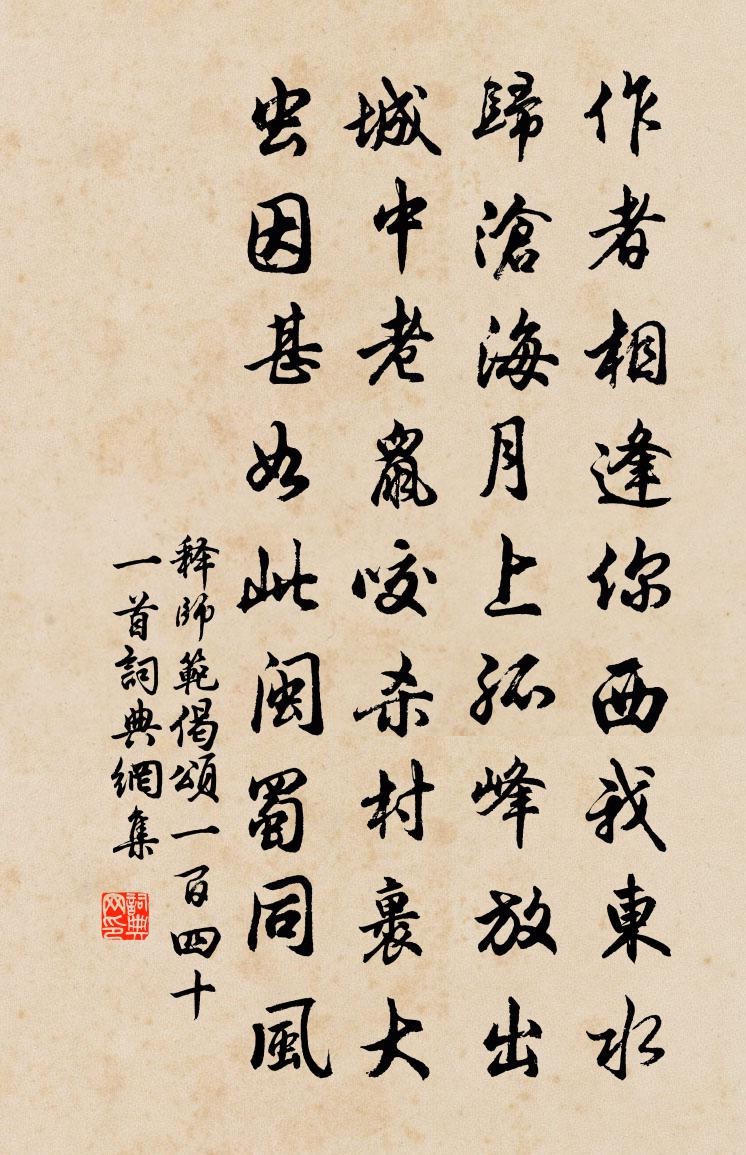 作者相逢你西我東水
歸滄海月上孤峰放出
城中老鼠咬杀村裏大
虫因甚如此闽蜀同風
释師範偈頌一百四十
一首詞典網集
詞典网印